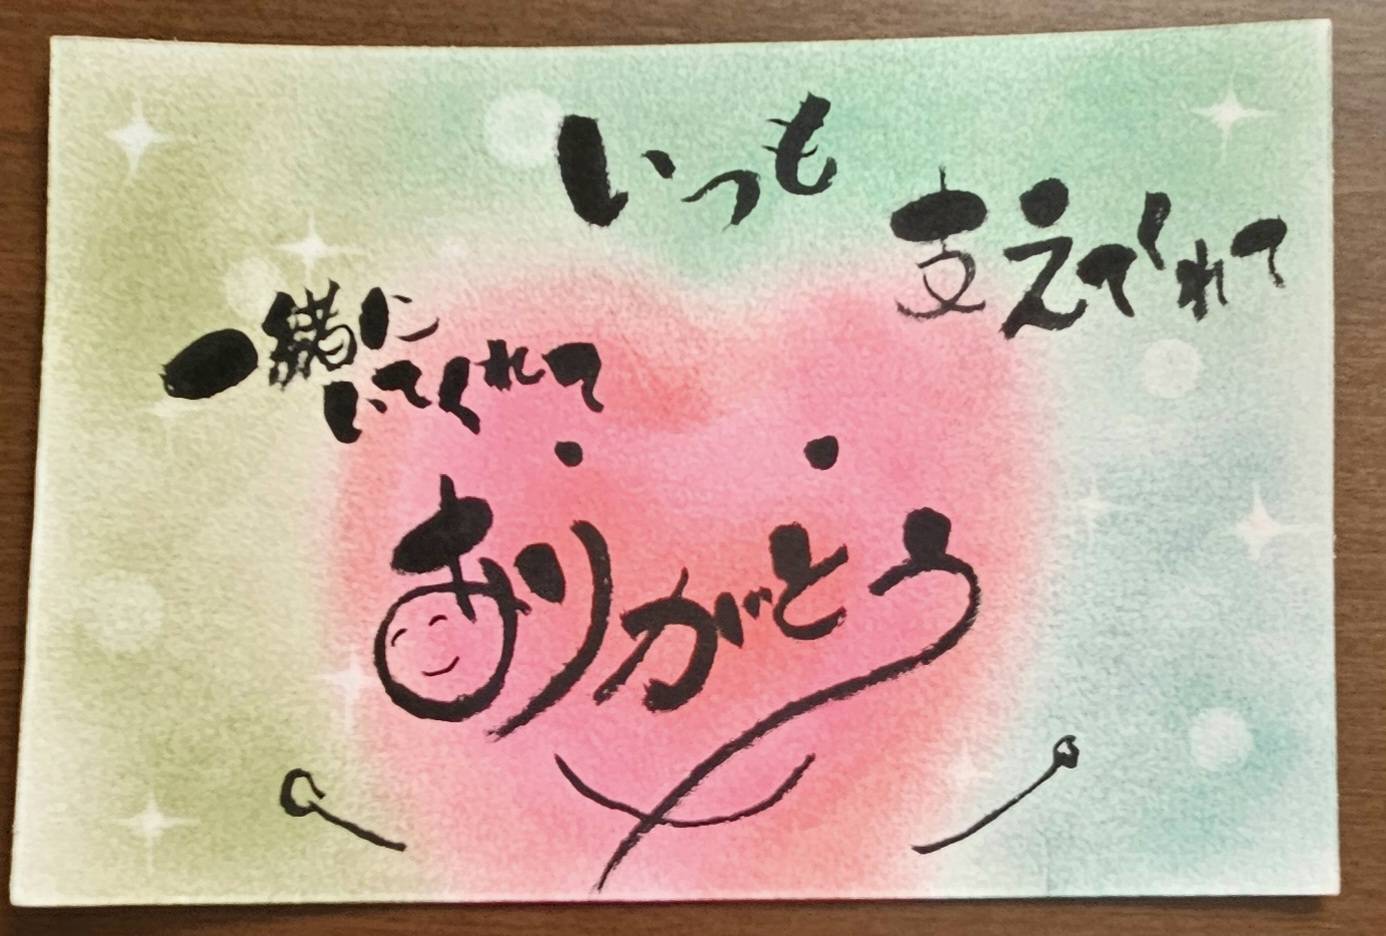 いつも
支えてくれて
一緒に
いてくれて
ありがとう